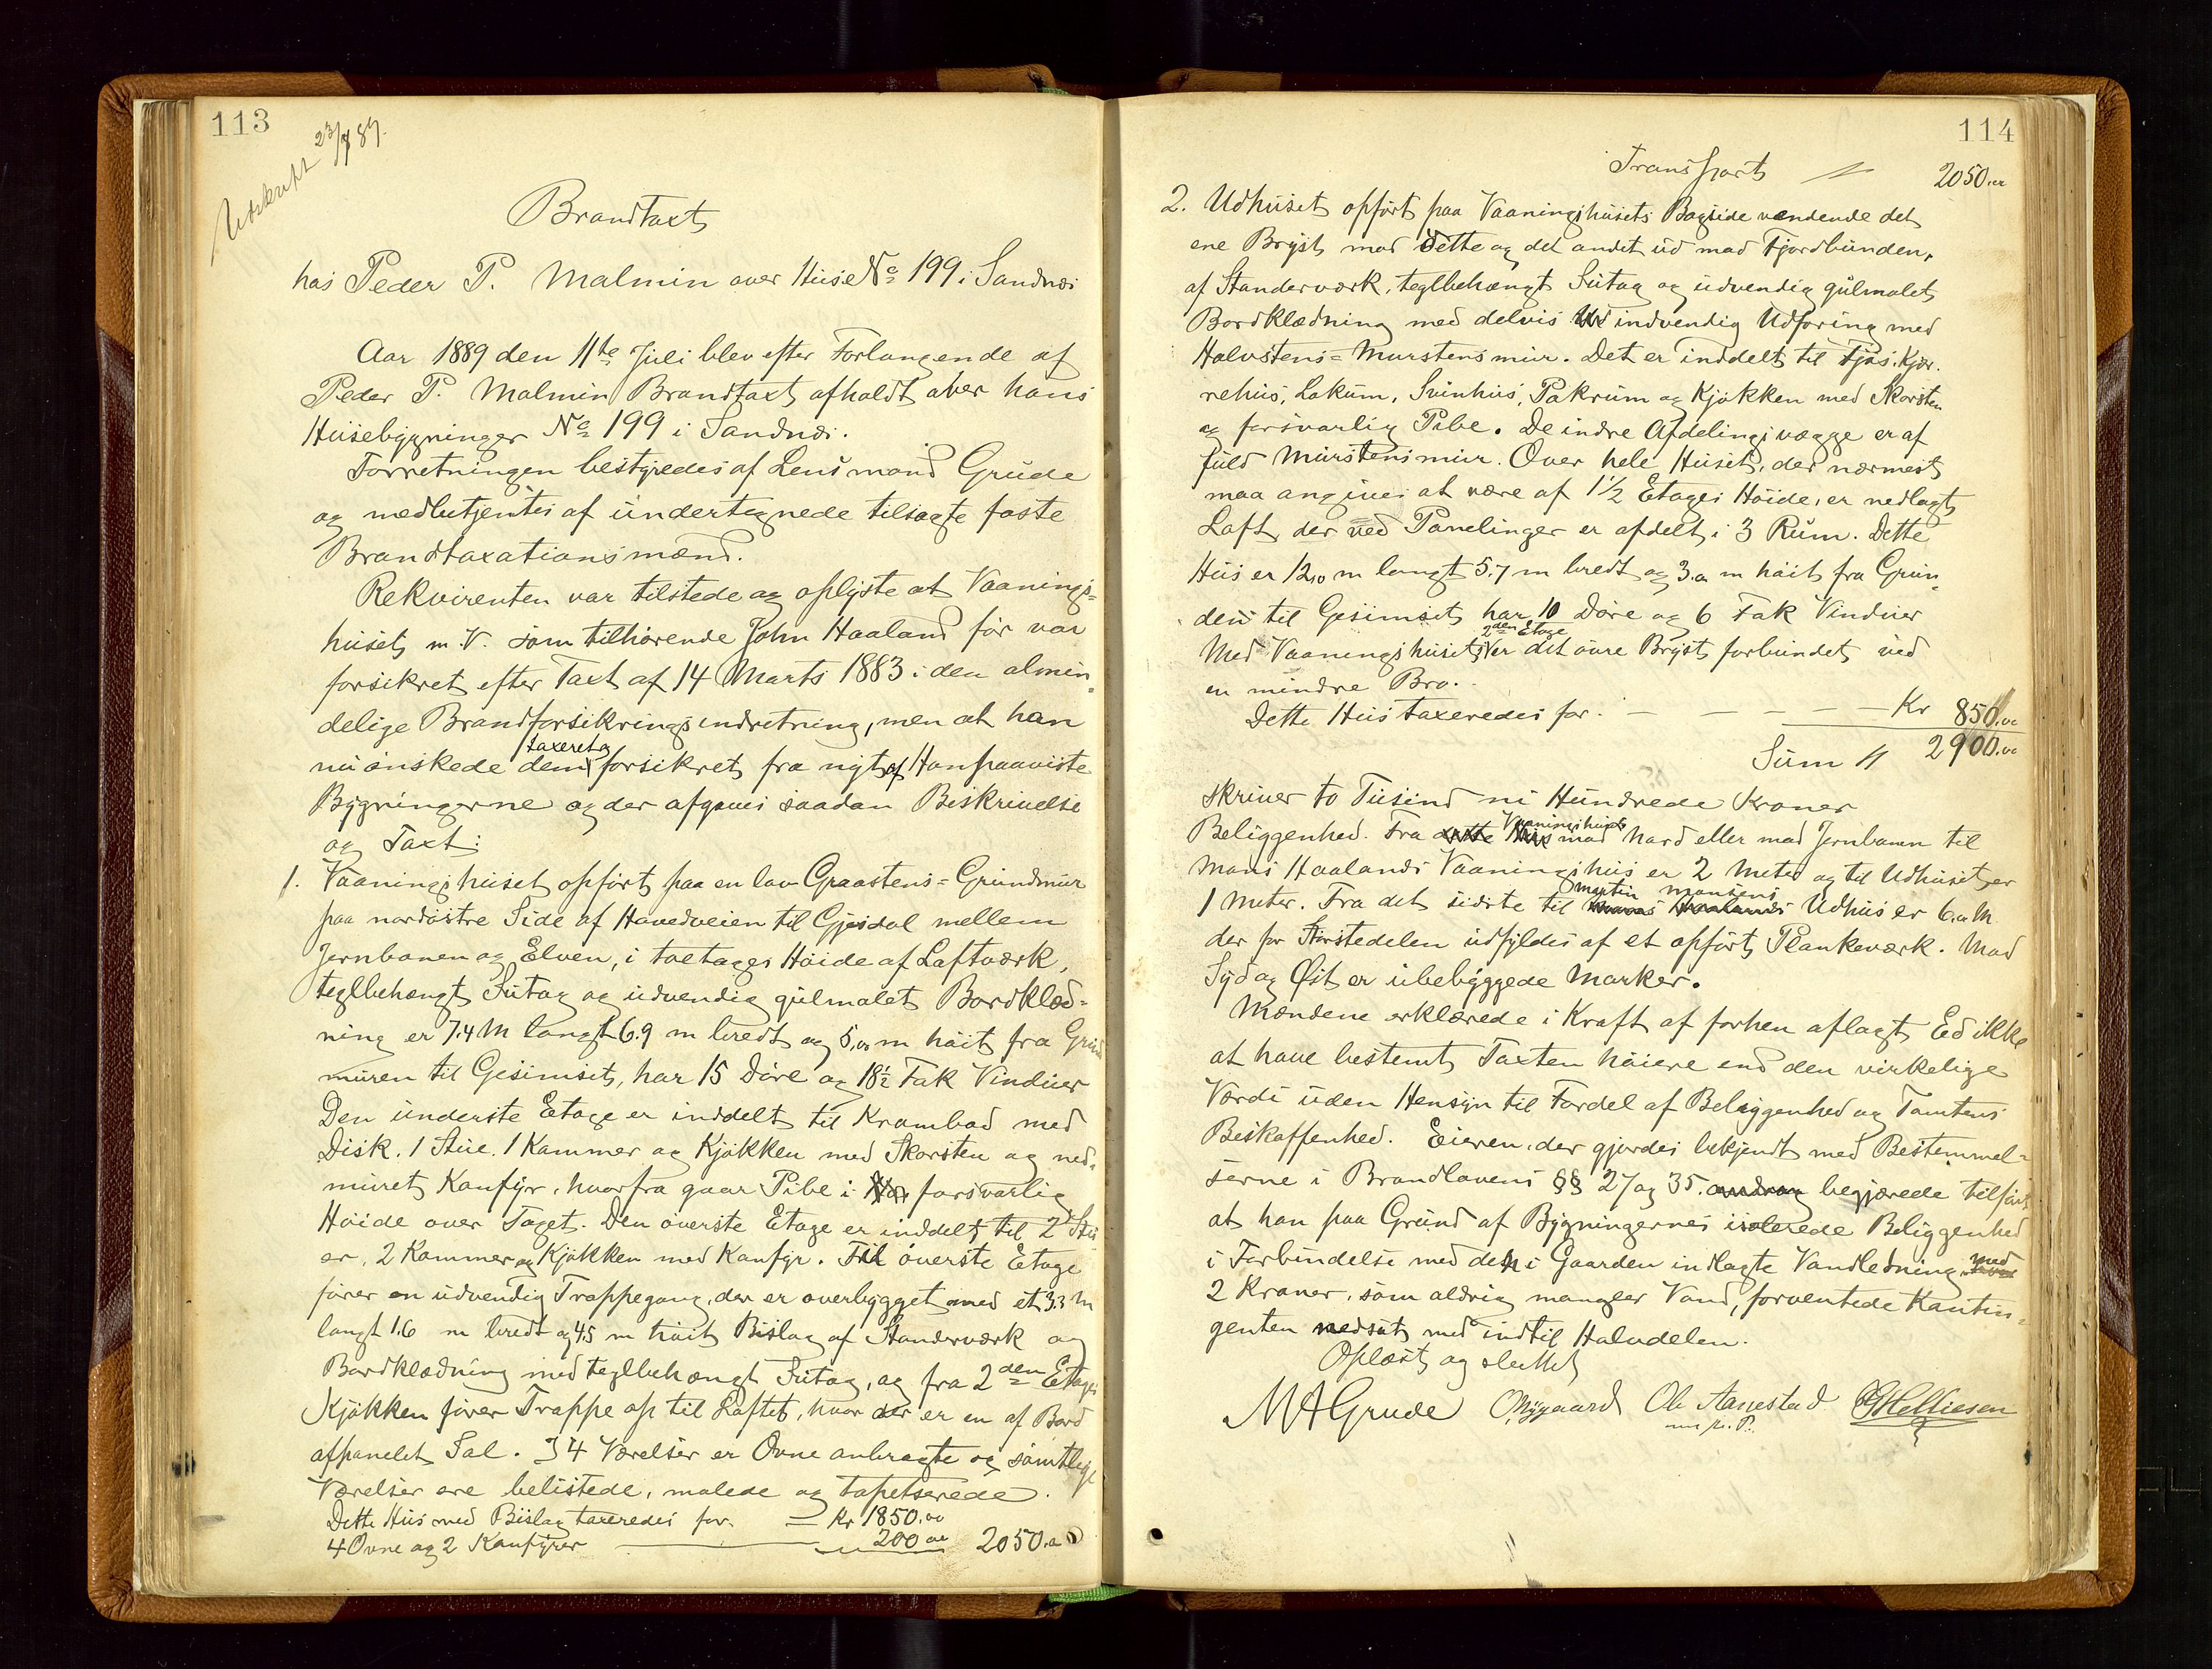 113
Utskrift 23/7 89.
Brandtaxt
hos Peder P. Malmin over Huse No 199 i Sandnæs
Aar 1889 den 11te Juli blev efter Forlangende af
Peder P. Malmin Brandtaxt afholdt over hans
Husebygninger No 199 i Sandnæs.
Forretningen bestyredes af Lensmand Grude
og medbetjentes af undertegnede tilsagte faste
Brandtaxationsmænd.
Rekvirenten var tilstede og oplyste at Vaanings-
huset m. V. som tilhørende John Haaland før var
forsikret efter Taxt af 14 Marts 1883 i den almin-
delige Brandforsikringsindretning, men at han
nu ønskede dem taxeret og forsikret fra nyt af Han paaviste
Bygningerne og der afgaves saadan Beskrivelse
og Taxt:
1. Vaaningshuset opført paa en lav Graastens-Grundmur
paa nordøstre Side af Hovedveien til Gjesdal mellem
Jernbanen og Elven, i toetages Høide af Laftværk,
teglbehængt Sutag og udvendig gulmalet Bordklæd-
ning er 7.4 M langt 6.9 m bredt og 5.00 m høit fra Grund
muren til Gesimset, har 15 Døre og 18½ Fak Vinduer
Den underste Etage er inddelt til Krambod med
Disk. 1 Stue. 1 Kammer og Kjøkken med Skorsten og ned-
muret Komfyr, hvorfra gaar Pibe i forsvarlig
Høide over Taget. Den øverste Etage er inddelt til 2 Stu
er, 2 Kammer og Kjøkken med Komfyr. Til øverste Etage
fører en udvendig Trappegang, der er overbygget med et 3.3 M
langt 1.6 m bredt og 4.5 m høit Bislag af Standerværk og
Bordklædning med teglbehængt Sutag, og fra 2den Etages
Kjøkken fører Trappe op til Loftet, hvor der er en af Bord
afpanelet Sal. I 4 Værelser er Ovne anbragte og samtlige
Værelser ere belistede, malede og tapetserede.
Dette Hus med Bislag taxeredes for = Kr 1850.00
4 Ovne og 2 Komfyrer 200 00 2050.00
114
Transport " 2050.00
2. Udhuset opført paa Vaaningshusets Bagside vendende det
ene Bryst mod dette og det andet ud mod Fjordbunden,
af Standerværk, teglbehængt Sutag og udvendig gulmalet
Bordklædning med delvis indvendig Udforing med
Halvstens-Murstensmur. Det er inddelt til Fjøs, Kjær-
rehus, Lokum, Svinhus, Pakrum og Kjøkken med Skorsten
og forsvarlig Pibe. De indre Afdelingsvægge er af
fuld Murstensmur. Over hele Huset, der nærmest
maa angives at være af 1½ Etages Høide, er nedlagt
Loft, der ved Panelinger er afdelt i 3 Rum. Dette
Hus er 12.10 m langt 5.7 m bredt og 3.0 m høit fra Grun-
den til Gesimset har 10 Døre og 6 Fak Vinduer
Med Vaaningshusets 2den Etage er det øvre Bryst forbundet ved
en mindre Bro.
Dette Hus taxeredes for. — — — — — Kr 850.00
Sum " 2900.00
skriver to Tusind ni Hundrede Kroner
Beliggenhed. Fra Vaaningshuset mod Nord eller mod Jernbanen til
Mons Haalands Vaaningshus er 2 Meter og til Udhuset er
1 Meter. Fra det sidste til Martin Monsens Udhus er 6.0 M
der for Størstedelen udfyldes af et opført Plankeværk. Mod
Syd og Øst er ubebyggede Marker.
Mændene erklærede i Kraft af forhen aflagt Ed ikke
at have bestemt Taxten høiere end den virkelige
Værdi uden Hensyn til Fordel af Beliggenhed og Tomtens
Beskaffenhed. Eieren, der gjordes bekjendt med Bestemmel-
serne i Brandlovens §§ 27 og 35. begjærede tilført
at han paa Grund af Bygningernes isolerede Beliggenhed
i Forbindelse med den i Gaarden indlagte Vandledning med
2 Kraner, som aldrig mangler Vand, forventede Kontin-
genten nedsat med indtil Halvdelen.
Oplæst og sluttet
MAGrude ONygaard Ole Aanestad GHelliesen
m. p. P.